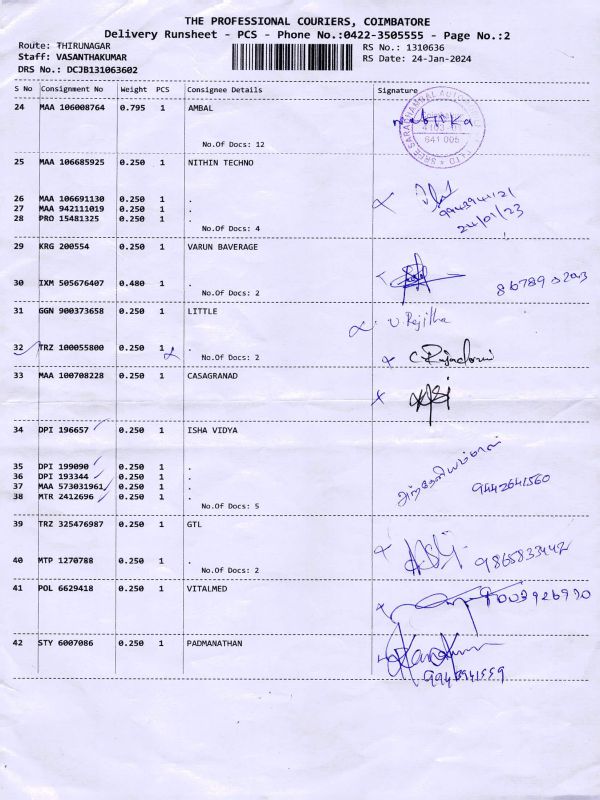 THE PROFESSIONAL COURIERS, COIMBATORE
Delivery Runsheet - PCS - Phone No.:0422-3505555 - Page No.:2
Route: THIRUNAGAR RS No.: 1310636
Staff: VASANTHAKUMAR RS Date: 24-Jan-2024
DRS No.: DCJB131063602
S No Consignment No Weight PCS Consignee Details Signature
24 MAA 106008764 0.795 1 AMBAL
641 005
No.Of Docs: 12
25 MAA 106685925 0.250 1 NITHIN TECHNO
26 MAA 106691130 0.250 1 .
27 MAA 942111019 0.250 1 .
28 PRO 15481325 0.250 1 .
24/01/23
No.Of Docs: 4
29 KRG 200554 0.250 1 VARUN BAVERAGE
30 IXM 505676407 0.480 1 .
No.Of Docs: 2
31 GGN 900373658 0.250 1 LITTLE
U. Rejitha
32 TRZ 100055800 0.250 1 .
No.Of Docs: 2
33 MAA 100708228 0.250 1 CASAGRANAD
34 DPI 196657 0.250 1 ISHA VIDYA
35 DPI 199090 0.250 1 .
36 DPI 193344 0.250 1 .
37 MAA 573031961 0.250 1 .
38 MTR 2412696 0.250 1 .
9442641560
No.Of Docs: 5
39 TRZ 325476987 0.250 1 GTL
40 MTP 1270788 0.250 1 .
9865833442
No.Of Docs: 2
41 POL 6629418 0.250 1 VITALMED
42 STY 6007086 0.250 1 PADMANATHAN